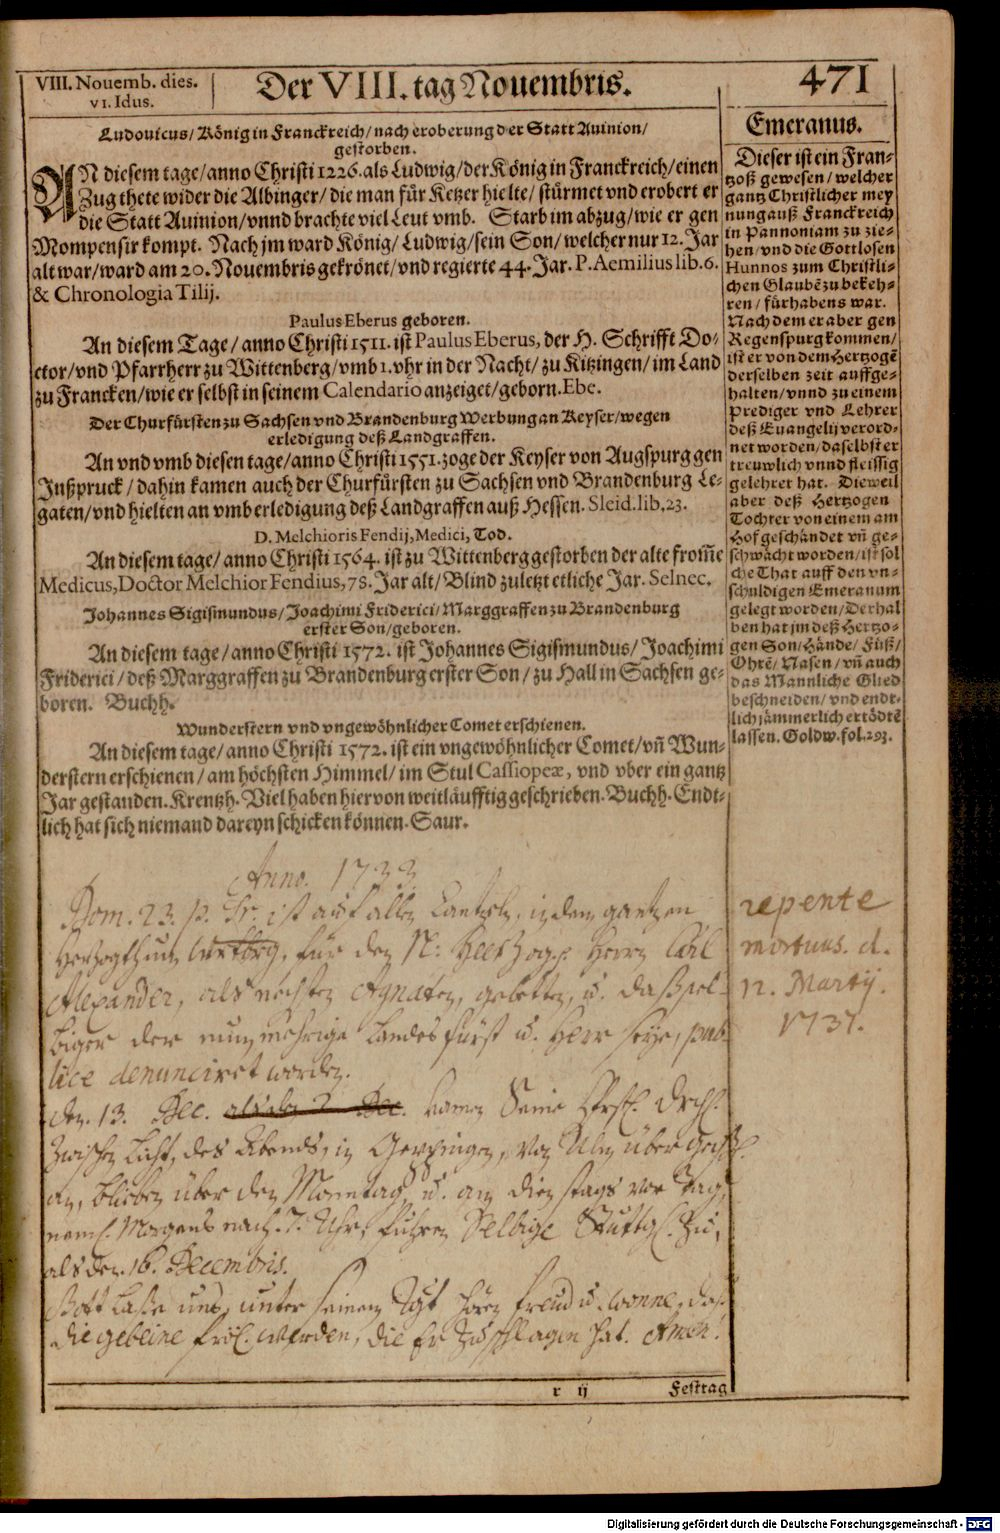 VIII. Nouemb. dies.
VI. Idus.
Der VIII. tag Nouembris.
471
Ludouicus/ König in Franckreich/ nach eroberung der Statt Auinion/
gestorben.
AN diesem tage/ anno Christi 1226. als Ludwig/ der König in Franckreich/ einen
Zug thete wider die Albinger/ die man für Ketzer hielte/ stürmet vnd erobert er
die Statt Auinion/ vnnd brachte viel Leut vmb. Starb im abzug/ wie er gen
Mompensir kompt. Nach jm ward König/ Ludwig/ sein Son/ welcher nur 12. Jar
alt war/ ward am 20. Nouembris gekrönet/ vnd regierte 44. Jar. P. Aemilius lib. 6.
& Chronologia Tilij.
Paulus Eberus geboren.
An diesem Tage/ anno Christi 1511. ist Paulus Eberus, der H. Schrifft Do-
ctor/ vnd Pfarrherr zu Wittenberg/ vmb 1. vhr in der Nacht/ zu Kitzingen/ im Land
zu Francken/ wie er selbst in seinem Calendario anzeiget/ geborn. Ebe.
Der Churfürsten zu Sachsen vnd Brandenburg Werbung an Keyser/ wegen
erledigung deß Landgraffen.
An vnd vmb diesen tage/ anno Christi 1551. zoge der Keyser von Augspurg gen
Jnßpruck/ dahin kamen auch der Churfürsten zu Sachsen vnd Brandenburg Le-
gaten/ vnd hielten an vmb erledigung deß Landgraffen auß Hessen. Sleid. lib. 23.
D. Melchioris Fendij, Medici, Tod.
An diesem tage/ anno Christi 1564. ist zu Wittenberg gestorben der alte from̃e
Medicus, Doctor Melchior Fendius, 78. Jar alt/ Blind zuletzt etliche Jar. Selnec.
Johannes Sigismundus/ Joachimi Friderici/ Marggraffen zu Brandenburg
erster Son/ geboren.
An diesem tage/ anno Christi 1572. ist Johannes Sigismundus/ Joachimi
Friderici/ deß Marggraffen zu Brandenburg erster Son/ zu Hall in Sachsen ge-
boren. Buchh.
Wunderstern vnd vngewöhnlicher Comet erschienen.
An diesem tage/ anno Christi 1572. ist ein vngewöhnlicher Comet/ vñ Wun-
derstern erschienen/ am höchsten Himmel/ im Stul Cassiopeæ, vnd vber ein gantz
Jar gestanden. Krentzh. Viel haben hiervon weitläufftig geschrieben. Buchh. Endt-
lich hat sich niemand dareyn schicken können. Saur.
Emeranus.
Dieser ist ein Fran-
tzoß gewesen/ welcher
gantz Christlicher mey
nung auß Franckreich
in Pannoniam zu zie-
hen/ vnd die Gottlosen
Hunnos zum Christli-
chen Glaubẽ zu bekeh-
ren/ fürhabens war.
Nach dem er aber gen
Regenspurg kommen/
ist er von dem Hertzogẽ
derselben zeit auffge-
halten/ vnnd zu einem
Prediger vnd Lehrer
deß Euangelij verord-
net worden/ daselbst er
treuwlich vnnd fleissig
gelehret hat. Dieweil
aber deß Hertzogen
Tochter von einem am
Hof geschändet vñ ge-
schwächt worden/ ist sol
che That auff den vn-
schuldigen Emeranum
gelegt worden/ Derhal
ben hat jm deß Hertzo-
gen Son/ Hände/ Füß/
Ohrẽ/ Nasen/ vñ auch
das Mannliche Glied
beschneiden/ vnd endt-
lich jämmerlich ertödtẽ
lassen. Goldw. fol. 293.
Anno. 1733
Dom. 23. p. Tr. ist auf allen Cantzeln, in dem gantzen
Herzogthum Wrtbrg, für den N: Herzog: Herrn Carl
Alexander, als nächsten Agnaten, gebetten, u. daß sel-
biger der nunmehrige Landes fürst u. Herr seye, pub-
lice denunciret worden.
den. 13. Dec. kamen Seine
Zwischen Licht, des Abends, in Göppingen, von Ulm über
an, blieben über den Monntag, u. am Dienstags vor Tag,
neml. Morgens nach. 7. Uhr, fuhren Selbige Stuttg. zu,
als den. 16. Decembris.
Gott Lasse uns, unter seinem hören freud u. wonne, daß
die gebeine fröl. werden, die Er zuschlagen hat. Amen!
repente
mortuus. d.
12. Martij.
1737.
r ij
Festtag
Digitalisierung gefördert durch die Deutsche Forschungsgemeinschaft - DFG